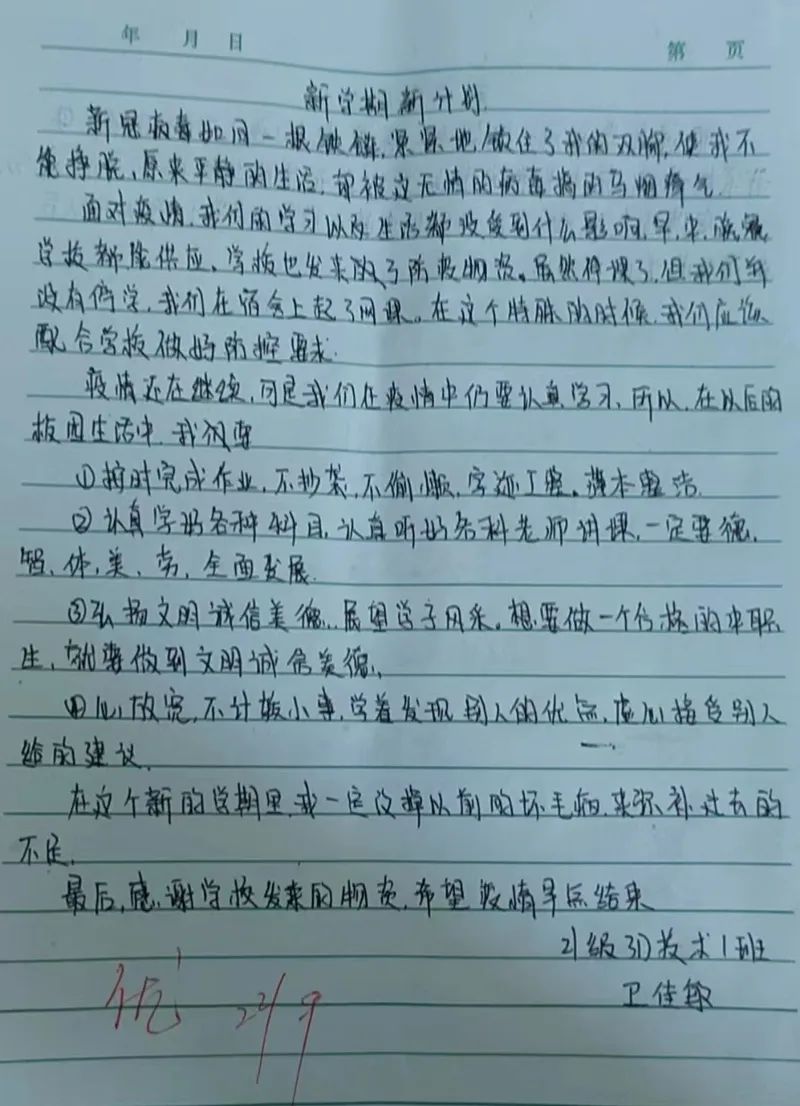 年 月 日
第 页
新学期新计划
新冠病毒如同一根铁链,紧紧地锁住了我的双脚,使我不
能挣脱、原来平静的生活,却被这无情的病毒搞的乌烟瘴气
面对疫情,我们的学习以及生活都没受到什么影响,早,中,晚餐
学校都能供应。学校也发来了防疫物资。虽然停课了,但我们并
没有停学,我们在宿舍上起了网课。在这个特殊的时候,我们应该
配合学校做好防控要求.
疫情还在继续,可是我们在疫情中仍要认真学习,所以,在以后的
校园生活中,我们要
①按时完成作业,不抄袭,不偷懒,字迹工整。薄本整洁
②认真学好各种科目,认真听好各科老师讲课,一定要德,
智,体,美、劳,全面发展.
③弘扬文明诚信美德,展望学子风采。想要做一个合格的中职
生,就要做到文明诚信美德,
④心放宽,不计较小事,学着发现别人的优点,虚心接受别人
给的建议.
在这个新的学期里,我一定改掉以前的坏毛病,来弥补过去的
不足.
最后,感谢学校发来的物资,希望疫情早点结束
21级3D技术1班
卫佳
优 22/9